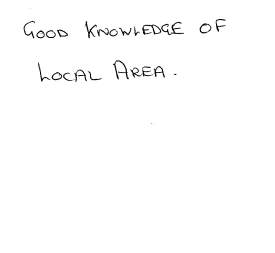 GOOD KNOWLEDGE OF
LOCAL AREA.